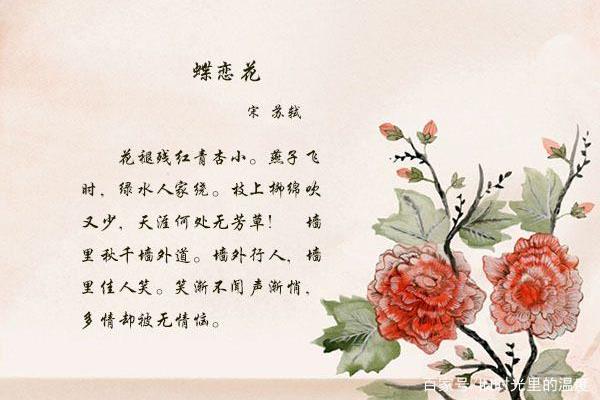 蝶恋花
宋 苏轼
花褪残红青杏小。燕子飞
时，绿水人家绕。枝上柳绵吹
又少，天涯何处无芳草！ 墙
里秋千墙外道。墙外行人，墙
里佳人笑。笑渐不闻声渐悄，
多情却被无情恼。
百家号/旧时光里的温度